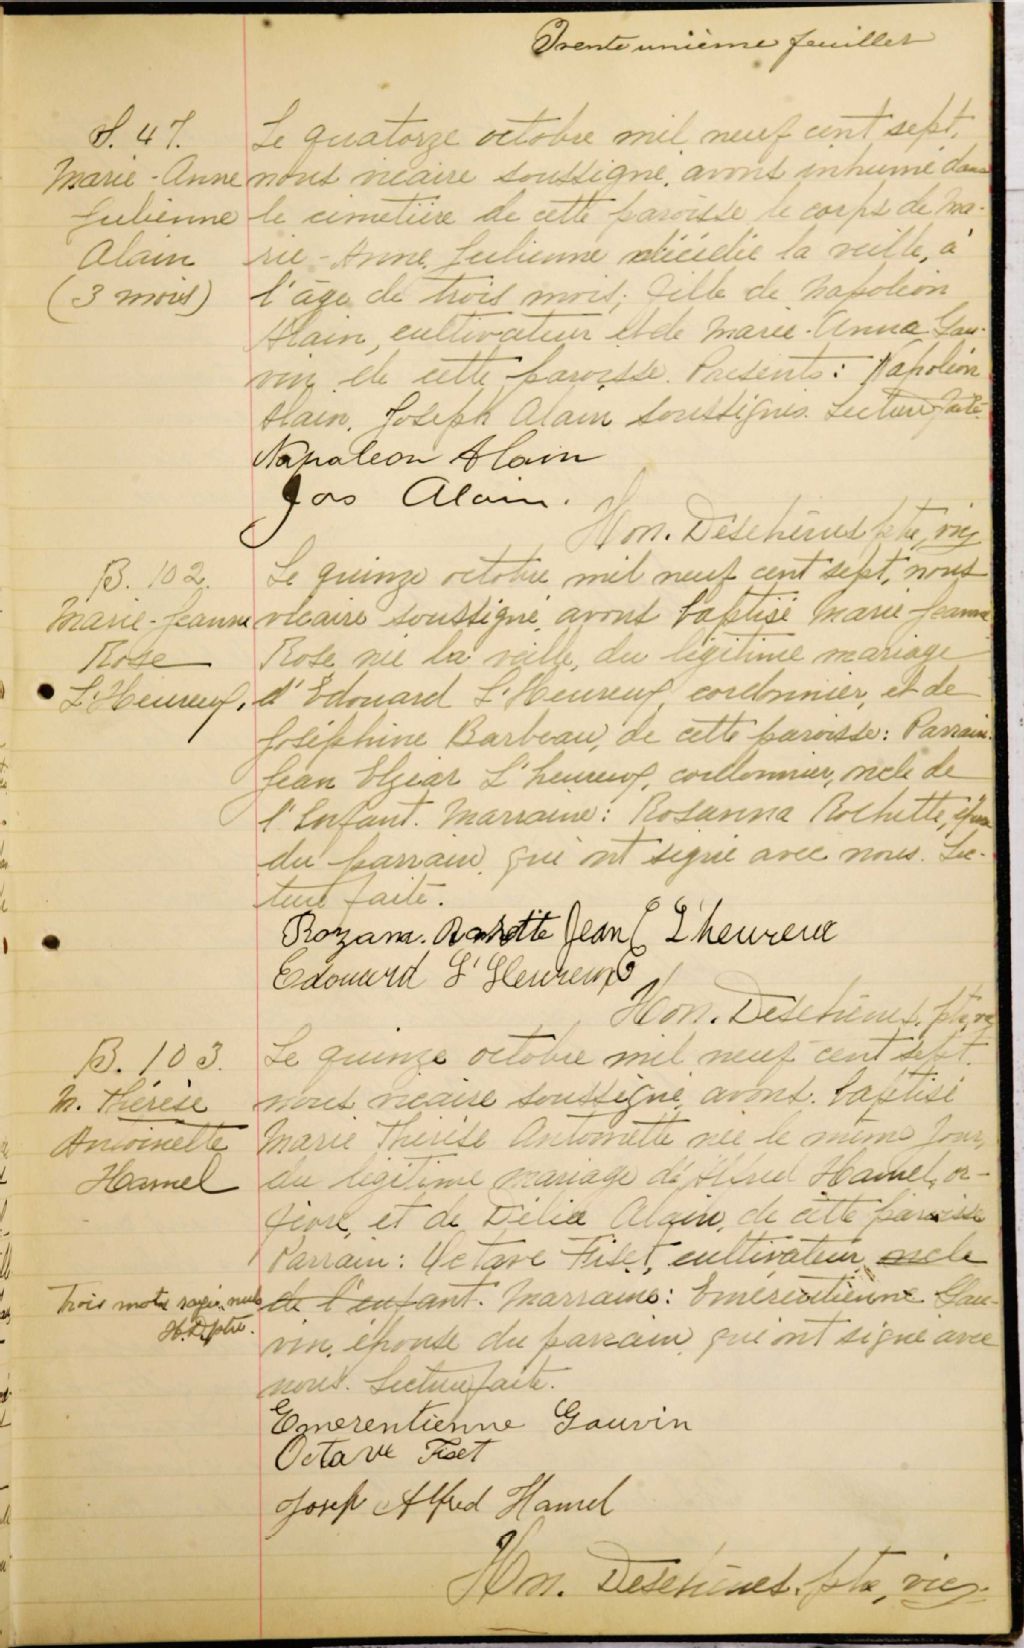 Trente unième feuillet
S. 47.
Marie-Anne
Julienne
Alain
(3 mois)
Le quatorze octobre mil neuf cent sept,
nous vicaire soussigné, avons inhumé dans
le cimetière de cette paroisse le corps de Ma-
rie-Anne Julienne décédée la veille, à
l'âge de trois mois, fille de Napoléon
Alain, cultivateur et de Marie-Anna Gau-
vin de cette paroisse. Présents: Napoléon
Alain, Joseph Alain soussignés. Lecture faite.
Napoleon Alain
Jos Alain.
Hon. Deschênes ptre, vic.
B. 102.
Marie-Jeanne
Rose
L'Heureux,
Le quinze octobre mil neuf cent sept, nous
vicaire soussigné, avons baptisé Marie Jeanne
Rose née la veille, du légitime mariage
d'Edouard L'Heureux, cordonnier, et de
Joséphine Barbeau, de cette paroisse: Parrain:
Jean Elzéar L'heureux, cordonnier, oncle de
l'Enfant. Marraine: Rosanna Rochette, épouse
du parrain, qui ont signé avec nous. Lec-
ture faite.
Rozana. Rochette Jean E L'heureux
Edouard L'Heureux
Hon. Deschênes, ptre, vic
B. 103.
M. Thérèse
Antoinette
Hamel
Le quinze octobre mil neuf cent sept,
nous vicaire soussigné, avons baptisé
Marie Thérèse Antoinette née le même jour,
du légitime mariage d'Alfred Hamel, or-
fèvre, et de Délia Alain, de cette paroisse
Parrain: Octave Fiset, cultivateur, oncle
de l'enfant. Marraine: Emérentienne Gau-
vin, épouse du parrain, qui ont signé avec
nous. Lecture faite.
Trois mots rayés nuls
H.D. ptre.
Emerentienne Gauvin
Octave Fiset
Joseph Alfred Hamel
Hon. Deschênes, ptre, vic.